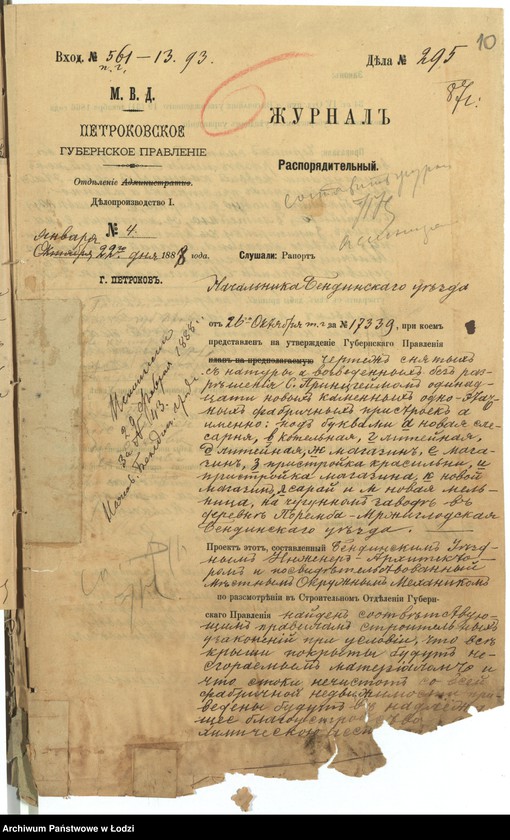 Вход. № 561 – 13. 93.
Дѣла № 295
10
87 г.
М. В. Д.
ПЕТРОКОВСКОЕ
ГУБЕРНСКОЕ ПРАВЛЕНІЕ
Отдѣленіе Административ.
Дѣлопроизводство I.
№ 4
января
Октября 22го дня 1888 года.
Г. ПЕТРОКОВЪ.
ЖУРНАЛЪ
Распорядительный.
Слушали: Рапортъ
Начальника Бендинскаго уѣзда
отъ 26го Октября т. г за № 17339, при коемъ
представленъ на утвержденіе Губернскаго Правленія
планъ на предполагаемую чертежъ снятый
съ натуры возведенныхъ безъ раз-
рѣшенія С. Принцгеймомъ одинад-
цати новыхъ каменныхъ одно-этаж-
ныхъ фабричныхъ пристроекъ а
именно: подъ буквами а новая сле-
сарня, в котельная, г литейная,
д литейная, ж магазинъ, е мага-
зинъ, з пристройка красильни, и
пристройка магазина, к новой
магазинъ, л сарай и м новая мель-
ница, на чугунномъ заводѣ въ
деревнѣ Поремба-Мржиглодская
Бендинскаго уѣзда.
Проектъ этотъ, составленный Бендинскимъ Уѣзд-
нымъ Инженеръ-Архитекто-
ромъ и посвидѣтельствованный
мѣстнымъ Окружнымъ Механикомъ
по разсмотрѣніи въ Строительномъ Отдѣленіи Губерн-
скаго Правленія найденъ соотвѣтствую-
щимъ правиламъ строительныхъ
узаконеній при условіи, что всѣ
крыши покрыты будутъ не-
сгораемымъ матеріаломъ и
что стоки нечистотъ со всей
фабричной недвижимости при-
ведены будутъ въ надлежа-
щее благоустройство
химической
Исполнено
29 февраля 1888 г.
за № 413.
Начал. Бендин. уѣзда
Archiwum Państwowe w Łodzi